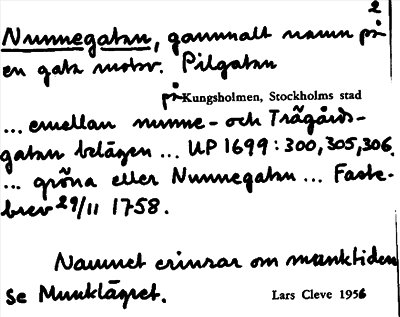 2
Nunnegatan, gammalt namn på
en gata motsv. Pilgatan
på Kungsholmen, Stockholms stad
... emellan nunne- och Trägårds-
gatan belägen ... UP 1699:300,305,306.
... gröna eller Nunnegatan ... Faste-
brev 29/11 1758.
Namnet erinrar om munktiden
se Munklägret.
Lars Cleve 1956